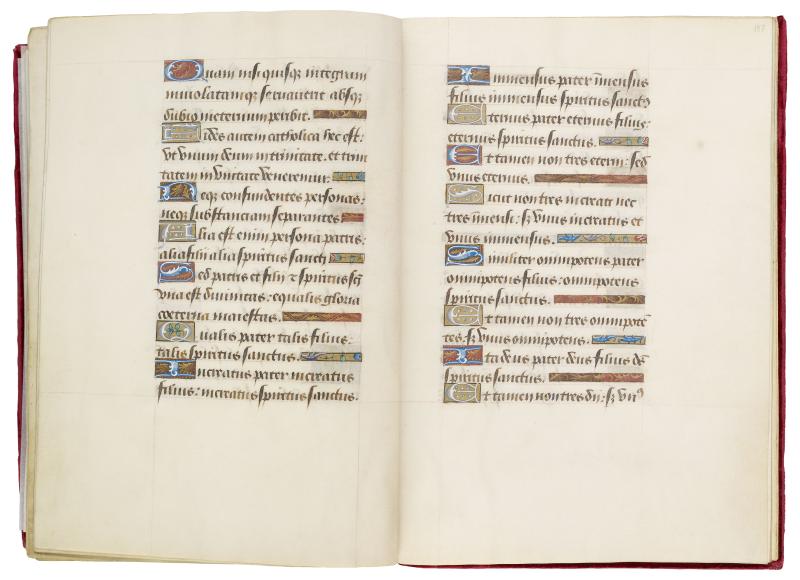 Quam nisi quisq; integram
inuiolatamq; seruauerit absq;
dubio in eternum peribit.
Fides autem catholica hec est:
vt vnum deum in trinitate. et trini
tatem in vnitate veneremur.
Neq; confundentes personas:
neq; substanciam separantes
Alia est enim persona patris:
alia filii alia spiritus sancti
Sed patris et filii ⁊ spiritus sči
vna est diuinitas: equalis gloria
coeterna maiestas.
Qualis pater talis filius:
talis spiritus sanctus.
Increatus pater increatus
filius: increatus spiritus sanctus.
187
Immensus pater īmensus
filius immensus spiritus sanctꝰ
Eternus pater eternus filius:
eternus spiritus sanctus.
Et tamen non tres eterni: sed
vnus eternus.
Sicut non tres increati nec
tres īmensi: sꝫ vnus increatus et
vnus immensus.
Similiter omnipotens pater
omnipotens filius: omnipotens
spiritus sanctus.
Et tamen non tres omnipotē
tes: sꝫ vnus omnipotens.
Ita deus pater deus filius de᷒
spiritus sanctus.
Et tamen non tres dii: sꝫ vnꝰ